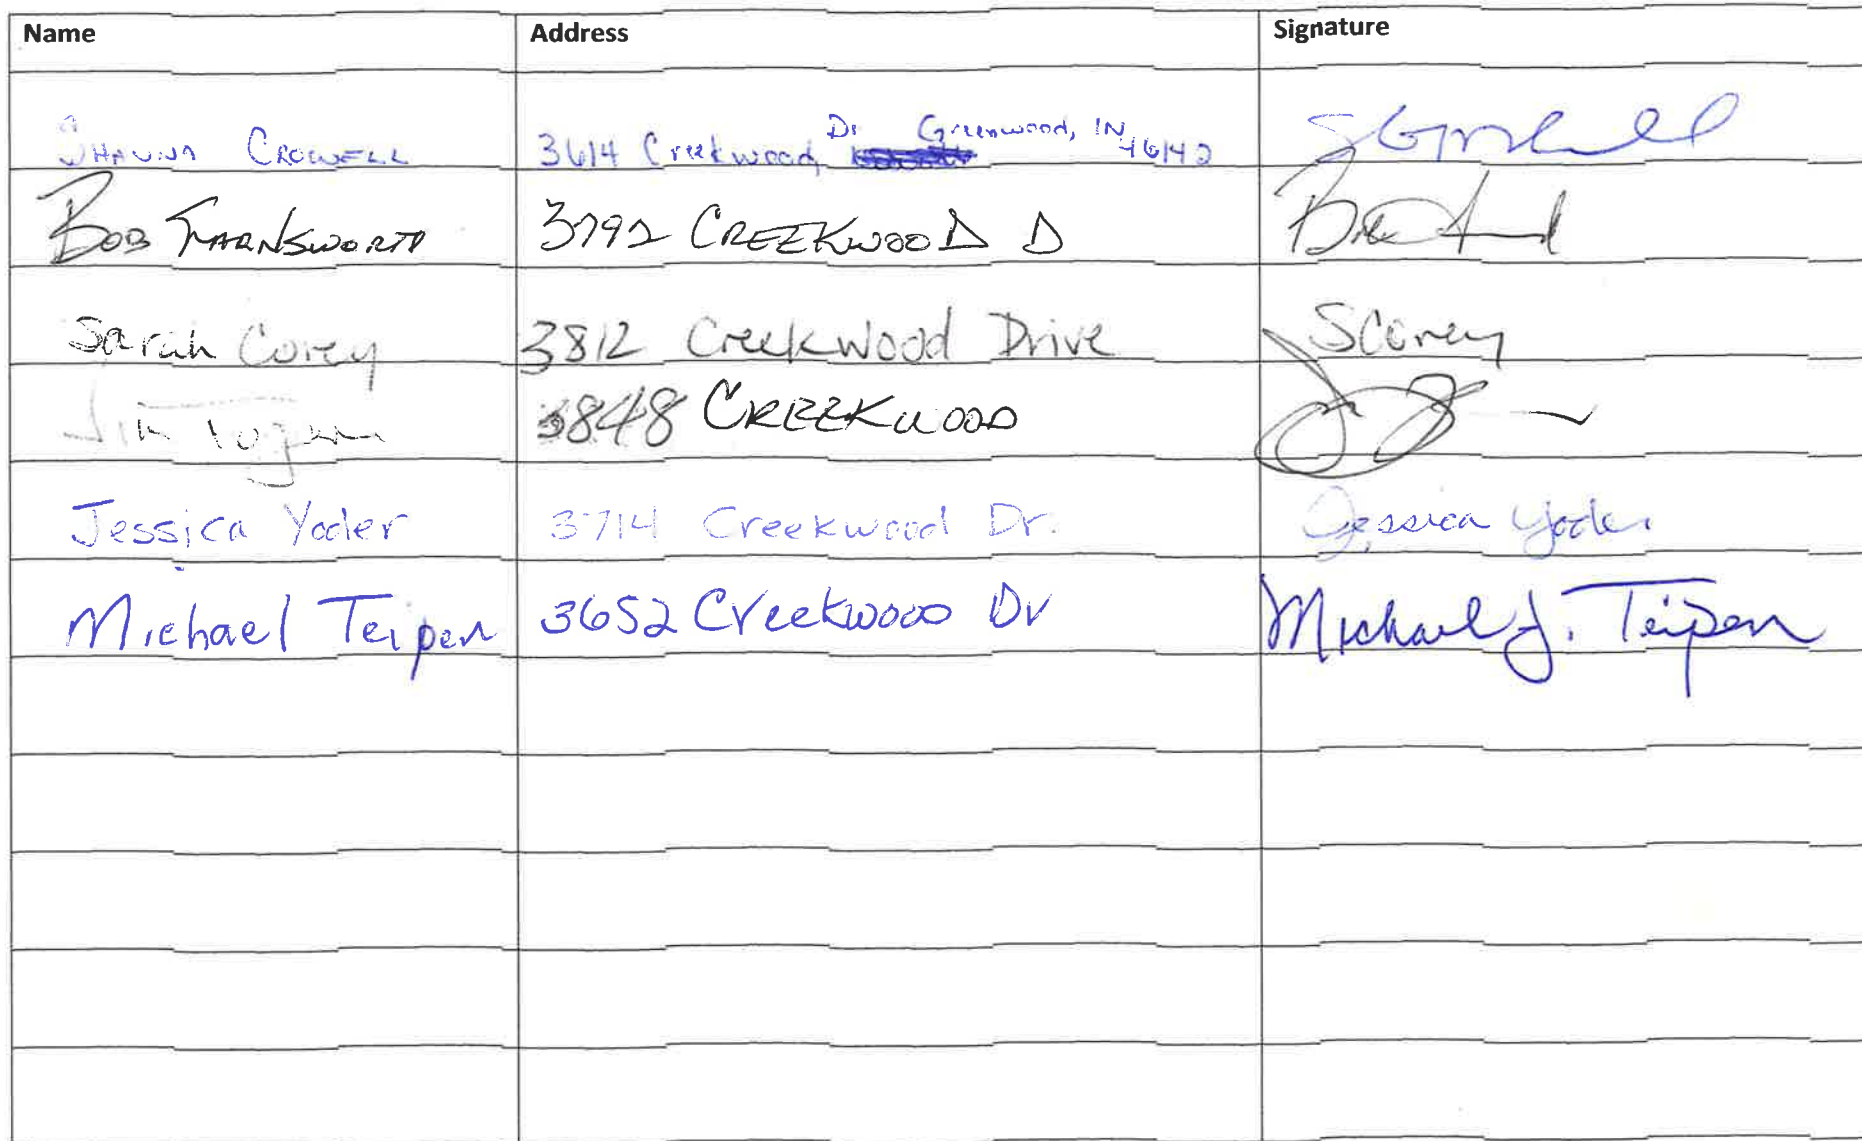 Name Address Signature
Shauna Crowell 3614 Creekwood Dr Greenwood, IN 46142
Bob Farnsworth 3792 Creekwood D
Sarah Corey 3812 Creekwood Drive SCorey
Jim 3848 Creekwood
Jessica Yoder 3714 Creekwood Dr. Jessica Yoder
Michael Teipen 3652 Creekwood Dr Michael J. Teipen